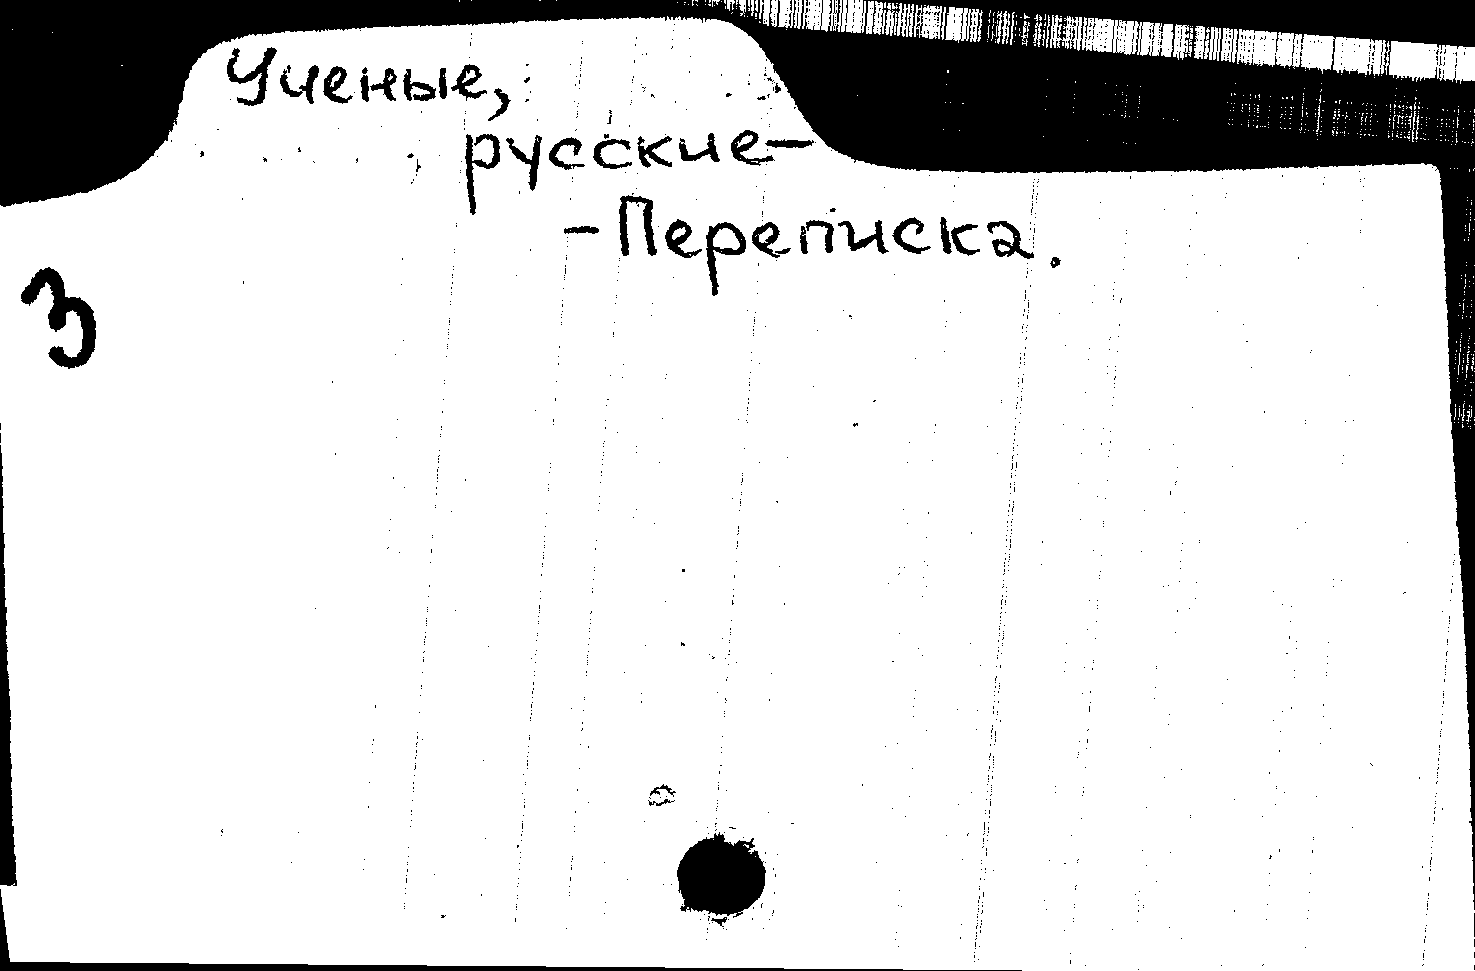 Ученые,
русские-
-Переписка.
З